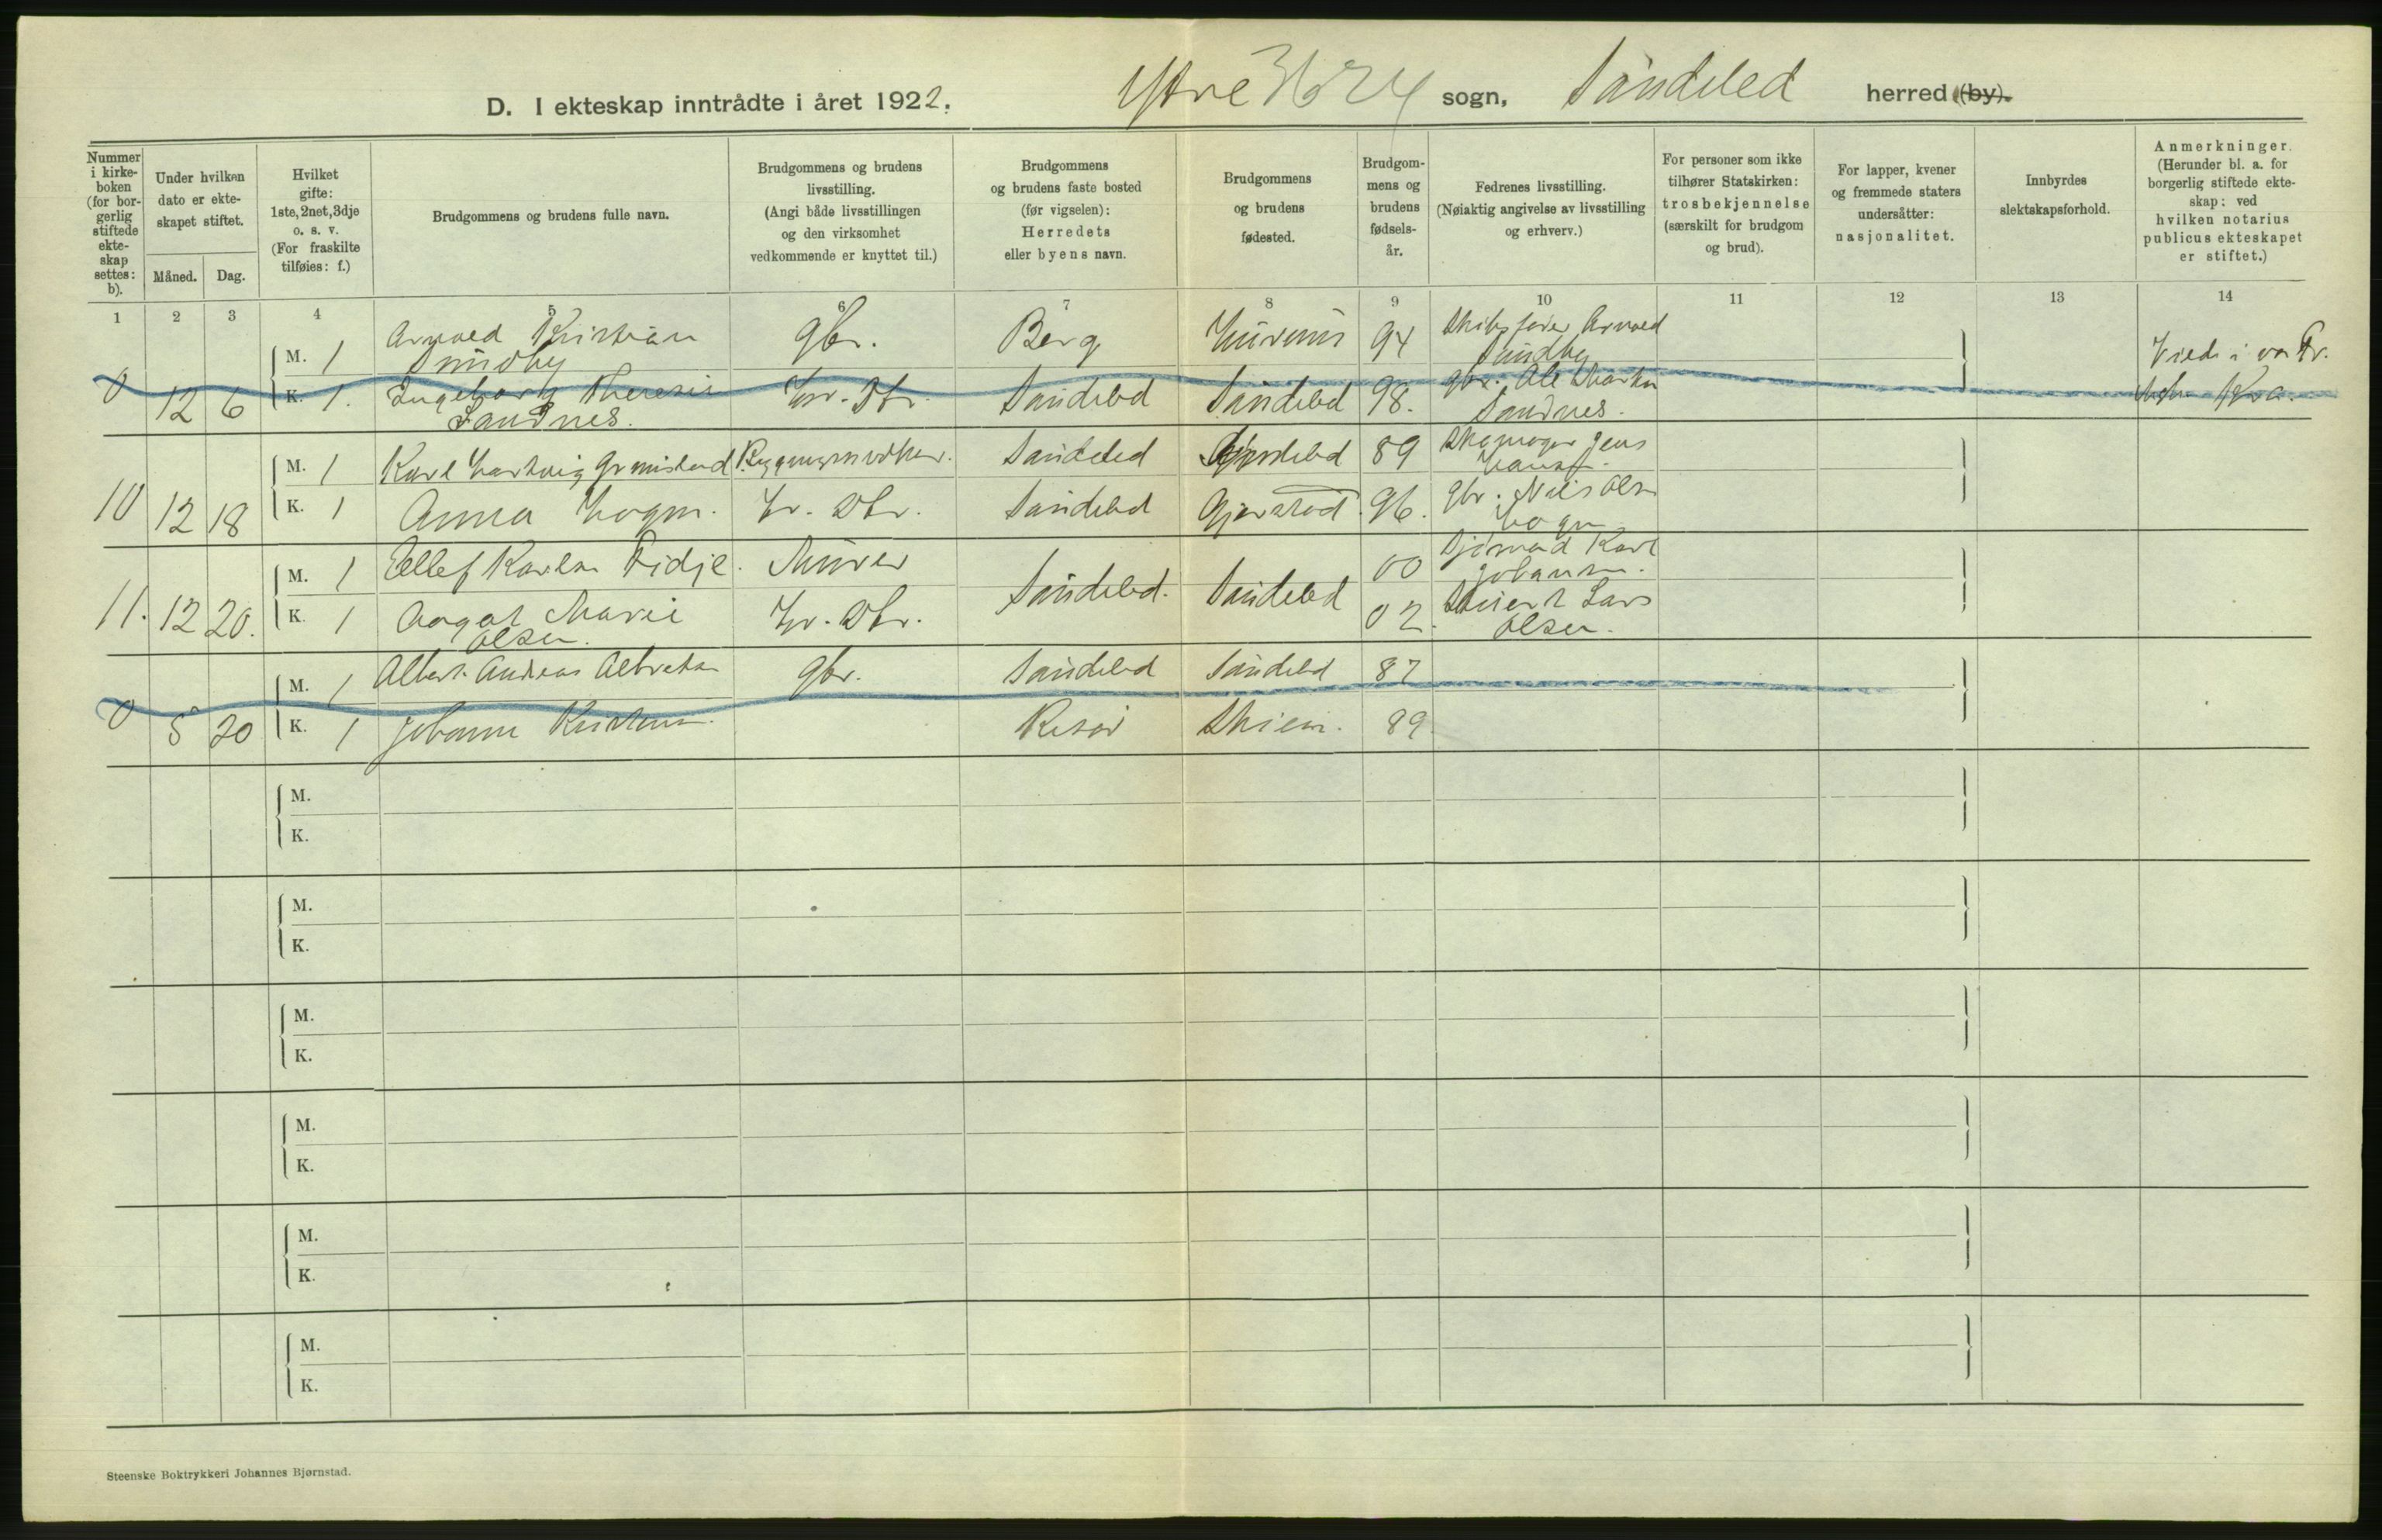 D. I ekteskap inntrådte i året 1922. Ytre 3624 sogn, Søndeled herred (by).
Nummer i kirkeboken (for borgerlig stiftede ekteskap settes: b).
Under hvilken dato er ekteskapet stiftet.
Måned. Dag.
Hvilket gifte: 1ste, 2net, 3dje o. s. v. (For fraskilte tilføies: f.)
Brudgommens og brudens fulle navn.
Brudgommens og brudens livsstilling. (Angi både livsstillingen og den virksomhet vedkommende er knyttet til.)
Brudgommens og brudens faste bosted (før vigselen): Herredets eller byens navn.
Brudgommens og brudens fødested.
Brudgommens og brudens fødselsår.
Fedrenes livsstilling. (Nøiaktig angivelse av livsstilling og erhverv.)
For personer som ikke tilhører Statskirken: trosbekjennelse (særskilt for brudgom og brud).
For lapper, kvener og fremmede staters undersåtter: nasjonalitet.
Innbyrdes slektskapsforhold.
Anmerkninger. (Herunder bl. a. for borgerlig stiftede ekteskap: ved hvilken notarius publicus ekteskapet er stiftet.)
1 2 3 4 5 6 7 8 9 10 11 12 13 14
M. 1 Arnold Kristian Sundby gbr. Berg Hurum 94 Skibsfører Arnold Sundby
0 12 6 K. 1. Ingeborg Theresie Sandnes. Hr. Dtr. Søndeled Søndeled 98. gbr. Ole Martin Sandnes. Viede i vor Fr.
M. 1 Karl Hartvig Søndeled 89 Skomager Jens
10 12 18 K. 1 Anna Hr. Dtr. Søndeled Gjerstad 96. gbr. Nils Olsn
M. 1 Ellef Karlsen Fidje. Murer Søndeled. Søndeled 00 Sjømand Karl Johansen.
11. 12 20. K. 1 Aagot Marie Olsen. Hr. Dtr. 02. Lars Olsen.
M. 1 Albert Andreas Albretsn gbr. Søndeled Søndeled 87
0 5 20 K. 1 Johanne Kristensn. Risør Skien. 89.
M.
K.
M.
K.
M.
K.
M.
K.
M.
K.
M.
K.
Steenske Boktrykkeri Johannes Bjørnstad.